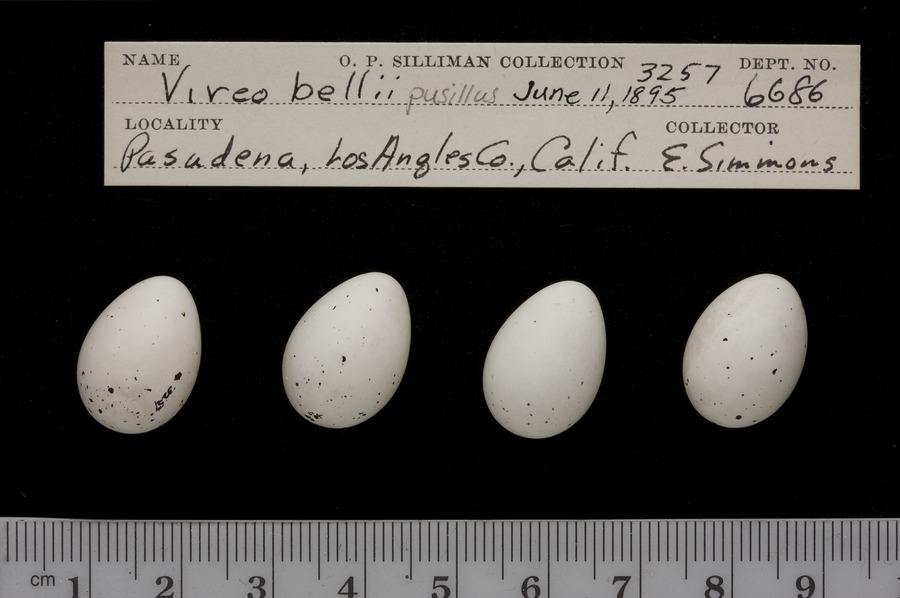 NAME O. P. SILLIMAN COLLECTION 3257 DEPT. NO.
Vireo bellii pusillus June 11, 1895 6686
LOCALITY COLLECTOR
Pasadena, Los Angles Co., Calif. E. Simmons
cm 1 2 3 4 5 6 7 8 9